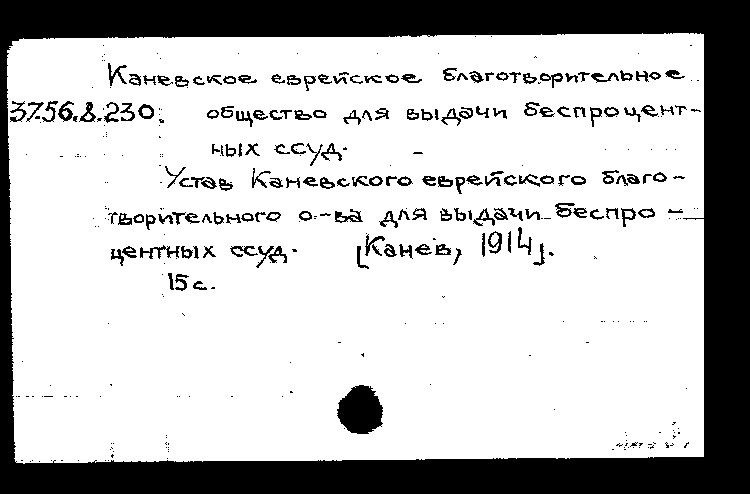 Каневское еврейское благотворительное
37.56.8.230. общество для выдачи беспроцент-
ных ссуд.
Устав Каневского еврейского благо-
творительного о-ва для выдачи беспро-
центных ссуд. [Канев, 1914].
15 с.